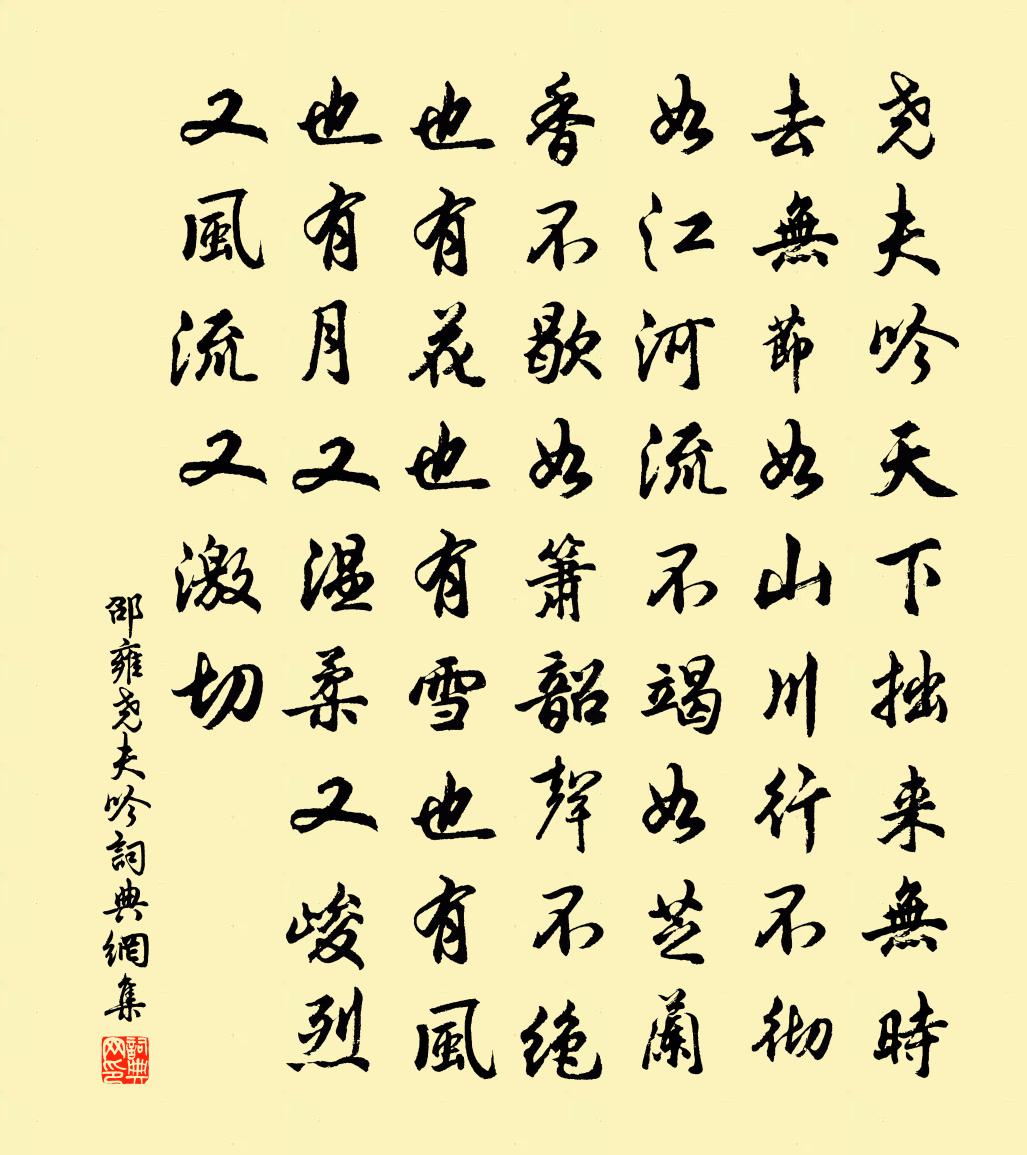 尧夫吟天下拙来無時
去無節如山川行不彻
如江河流不竭如芝蘭
香不歇如簫韶聲不绝
也有花也有雪也有風
也有月又温柔又峻烈
又風流又激切
邵雍尧夫吟詞典網集
詞典网印